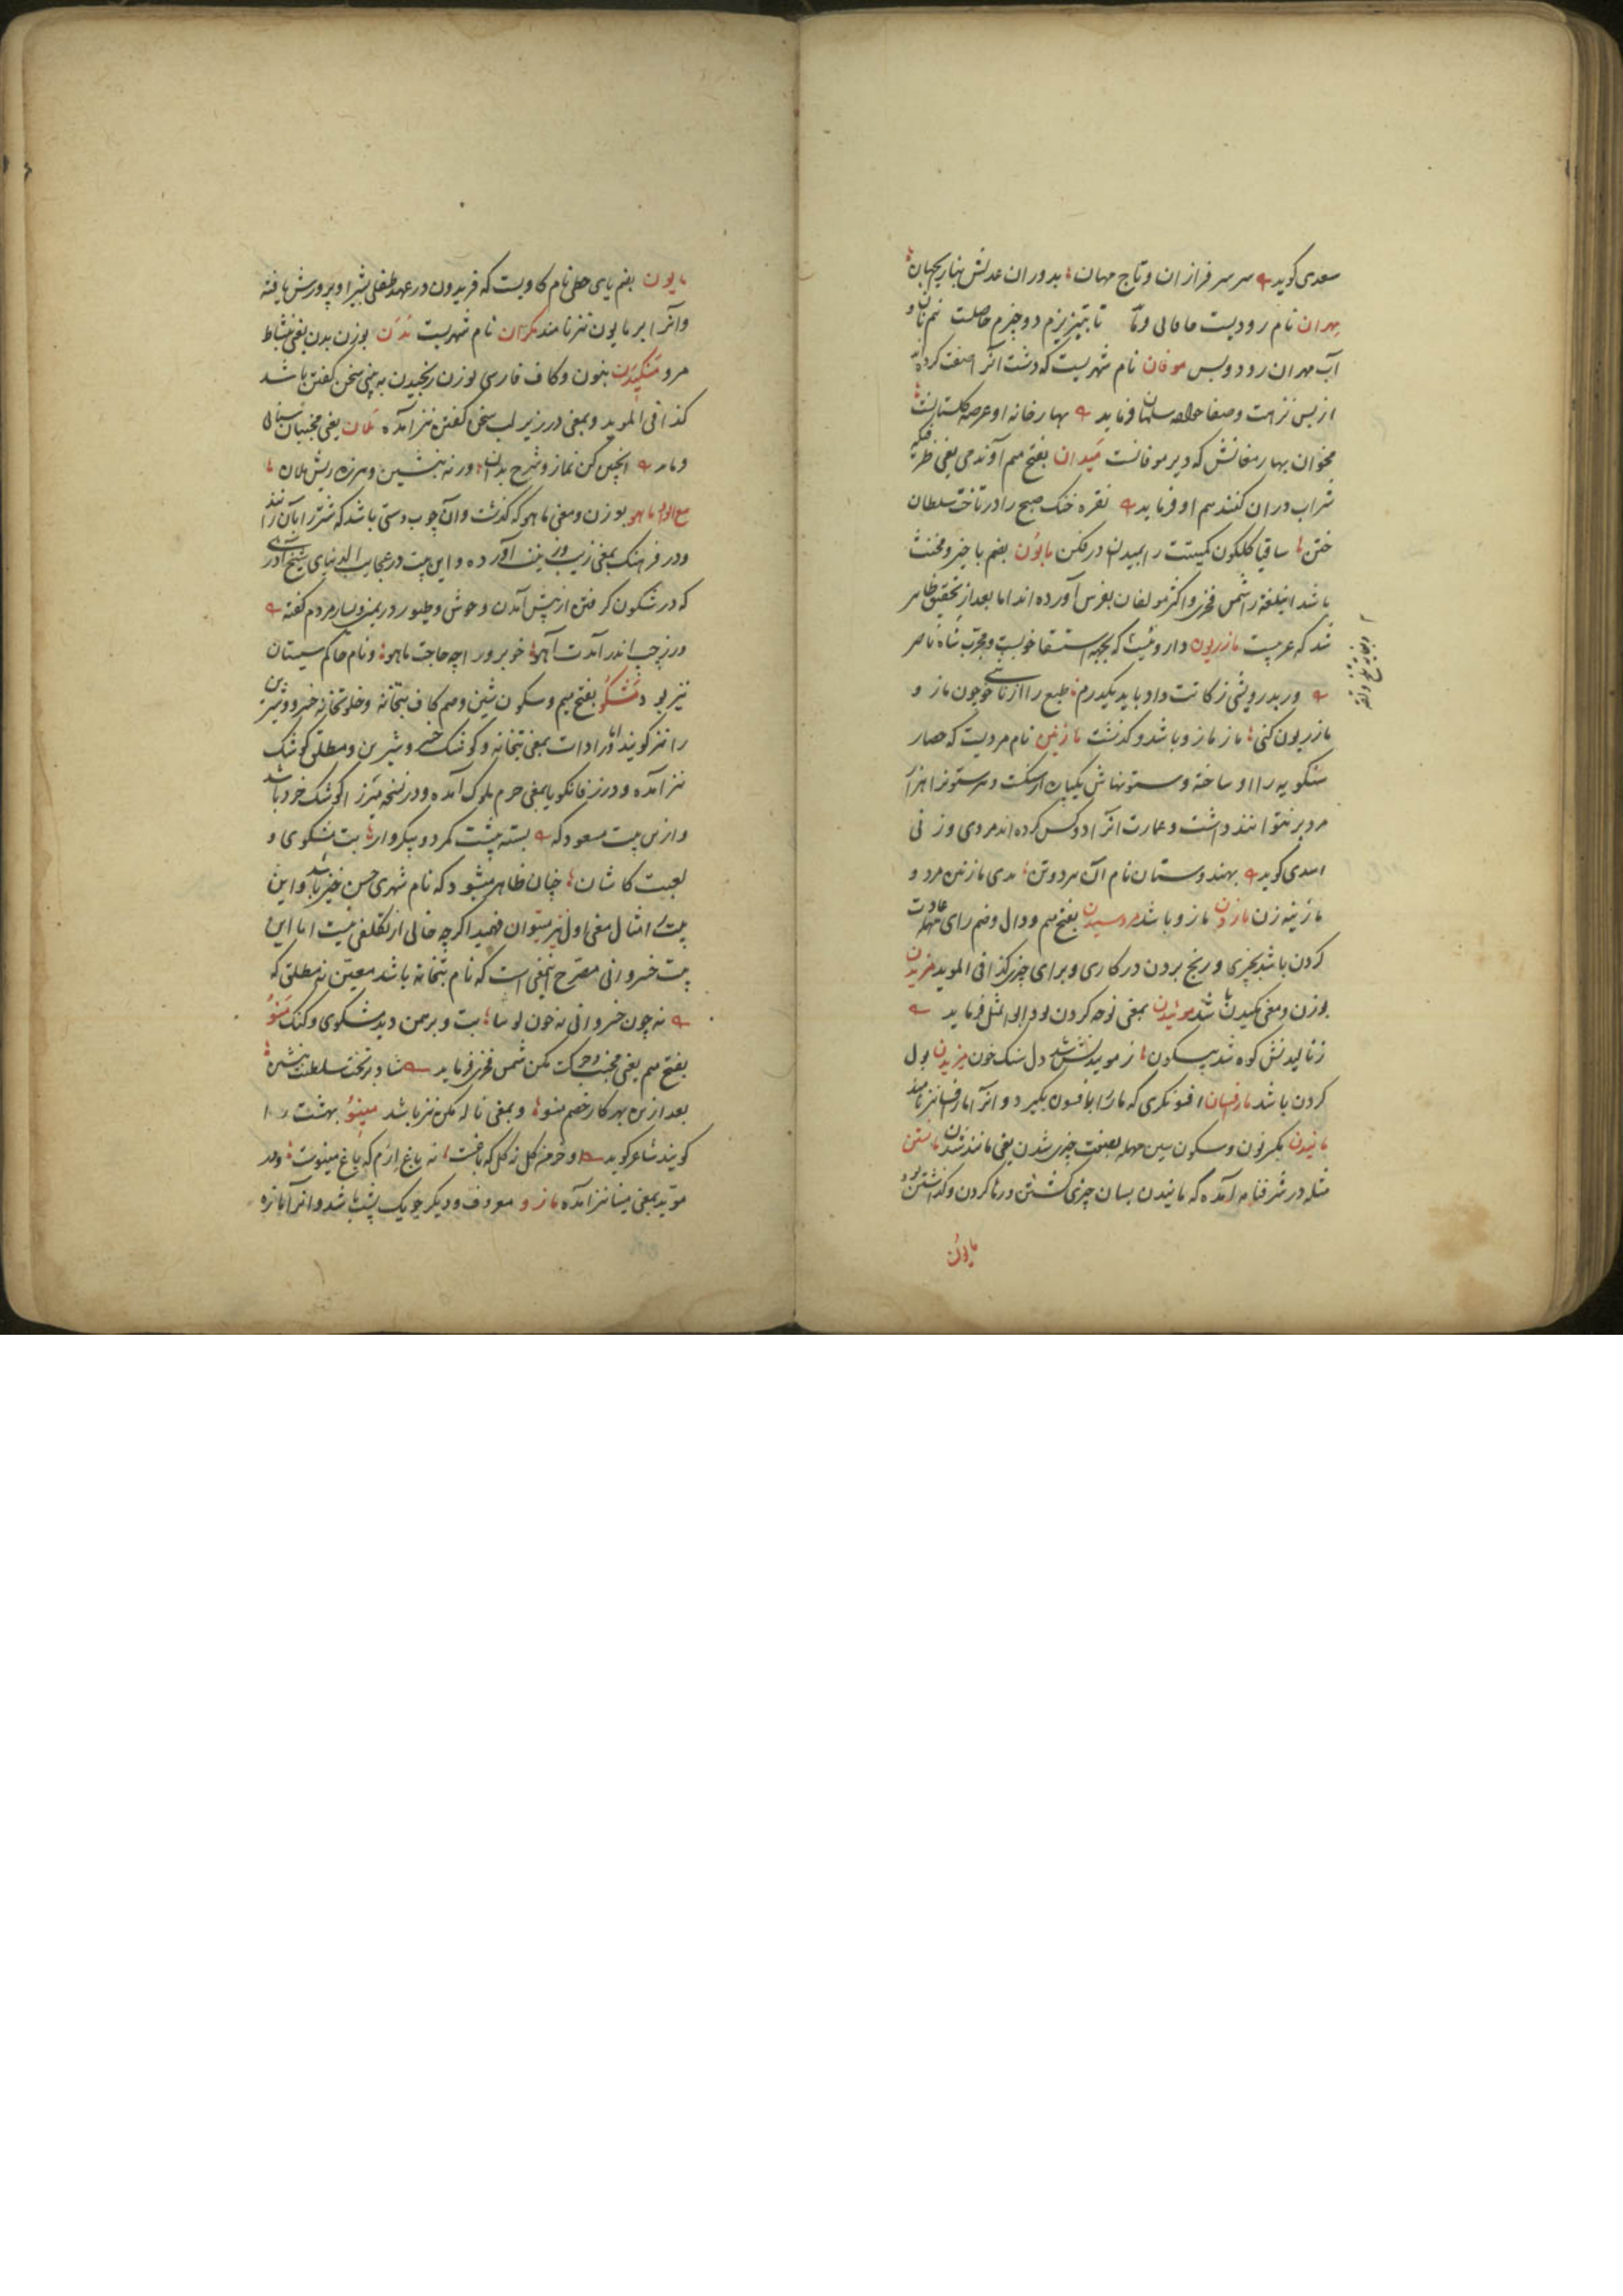 سعدی کوید سر سرفرازان و تاج مهان بدوران عدلش بناز یجهان
مهران نام رودیست خاقانی تا تبتیزیزم دو جیزم حاصلست نیم نان و
آب مهران رود و بس موقان نام شهریست که دشت آنرا صفت کرده
از بس نزهت و صفا سلمان فرماید بهارخانه او عرصه کلستانست
مخوان بهار مغانش که دیر موقانست میدان بفتح میم آوند می یعنی ظرفیکه
شراب در آن کنند هم او فرماید نقره خنک صبح را در تاخت سلطان
ختن ساقیا کلکون کمیتت را بمیدان در فکن مابون بضم با حیز و مخنث
باشد اینلغة را شمس فخری و اکثر مولفان بفرس آورده اند اما بعد از تحقیق ظاهر
شد که عربیست مازریون داروئیست که بجهه استسقا خوبست و مجرب شاه ناصر
ور بدرویشی زکاتت داد باید یکدرم طبع را از ناخوشی چون ماز و
مازریون کنی ماز مازو باشد و کذشت مازنین نام مردیست که حصار
سنکویه را او ساخته و ستونهاش یکپاره از سنکست و هر ستونرا هزار
مرد بر نتوانند داشت و عمارت آنرا دو کس کرده اند مردی و زنی
اسدی کوید بهندوستان نام آن هر دو تن بدی مازنین مرد و
مازینه زن مازن مازو باشد مردسیدن بفتح میم و دال و ضم رای مهمله عادت
کردن باشد بچیزی و رنج بردن در کاری و برای چیزی کذا فی الموید مزیدن
بوزن و معنی مکیدن باشد موئیدن بمعنی نوحه کردن بود ابوالمثل فرماید
ز نالیدنش کوه شد بیسکون ز مویدنش شد دل سنک خون میزیدن بول
کردن باشد مارفسان افسونکری که مار را بافسون بکیرد و آنرا مارفسا نیز نامند
مانیدن بکسر نون و سکون سین مهمله بصفت چیزی شدن یعنی مانند شدن مانستن
مثله در شرفنامه آمده که مانیدن بسان چیزی کشتن و رها کردن و کذاشتن بود
مایون
مایون بضم یای حطی نام کاویست که فریدون در عهد طفلی بشیر او پرورش یافته
و آنرا برمایون نیز نامند مکران نام شهریست مدن بوزن بدن یعنی نشاط
مرو منکیدن بنون و کاف فارسی بوزن رنجیدن به بینی سخن کفتن باشد
کذا فی الموید و بمعنی در زیر لب سخن کفتن نیز آمده ملان یعنی مجنبان سنائی
فرماید اینچنین کن نماز و شرح بدان ورنه بنشین و هرزه ریش ملان
مع الواو ماهو بوزن و معنی باهو که کذشت و آن چوب دستی باشد که شتر را بآن رانند
و در فرهنک بمعنی زیب و زینت آورده و این بیت در عجایب الدنیای شیخ آذری
که در شکون کرفتن از پیش آمدن وحوش و طیور در یمین و یسار مردم کفته
ور ز چپ اندر آمدت آهو خوبرو را چه حاجت ماهو و نام حاکم سیستان
نیز بود مشکو بفتح میم و سکون شین و ضم کاف بتخانه و خلوتخانه خسرو و شیرین
را نیز کویند اما در ادات بمعنی بتخانه و کوشک خسرو شیرین و مطلق کوشک
نیز آمده و در زفانکویا بمعنی حرم ملوک آمده و در نسخه میرزا کوشک خرد باشد
و از این بیت مسعود که بسته پیشت کمر دو پیکروار بت مشکوی و
لعبت کاشان چنان ظاهر میشود که نام شهری حسن خیز باشد و این
بیت امثال معنی اول نیز میتوان فهمید اکرچه خالی از تکلفی نیست اما این
بیت خسروانی مصرح اینمعنی است که نام بتخانه باشد معین نه مطلق که
نه چون خسروانی نه چون تو بتا بت و برهمن دید مشکوی و کنک منو
بفتح میم یعنی مجنب و حرکت مکن شمس فخری فرماید شاد بر تخت سلطنت بنشین
بعد از این بهر کار خصم منو و بمعنی ناله مکن نیز باشد مینو بهشت را
کویند شاعر کوید او خرمن کل نه کل که باغست نه باغ ارم که باغ مینوست و در
موید بمعنی مینا نیز آمده مازو معروف و دیکر چوبک پشت باشد و آنرا مازه